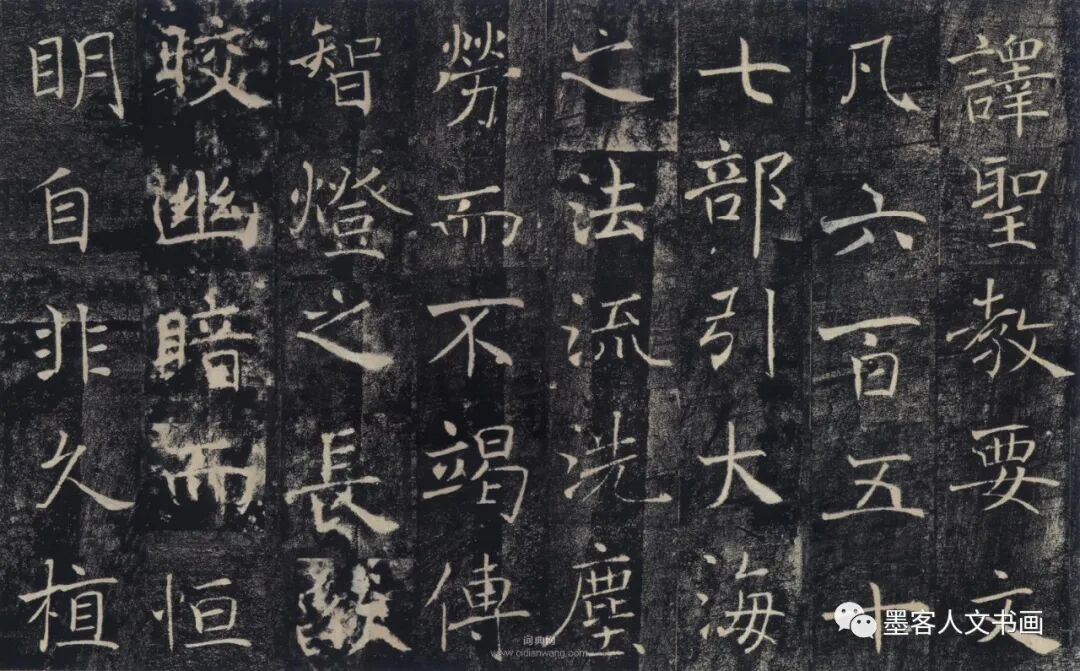 譯聖教要文
凡六百五十
七部引大海
之法流洗塵
勞而不竭傳
智燈之長燄
皎幽暗而恒
明自非久植
墨客人文书画
词典网
www.cidianwang.com